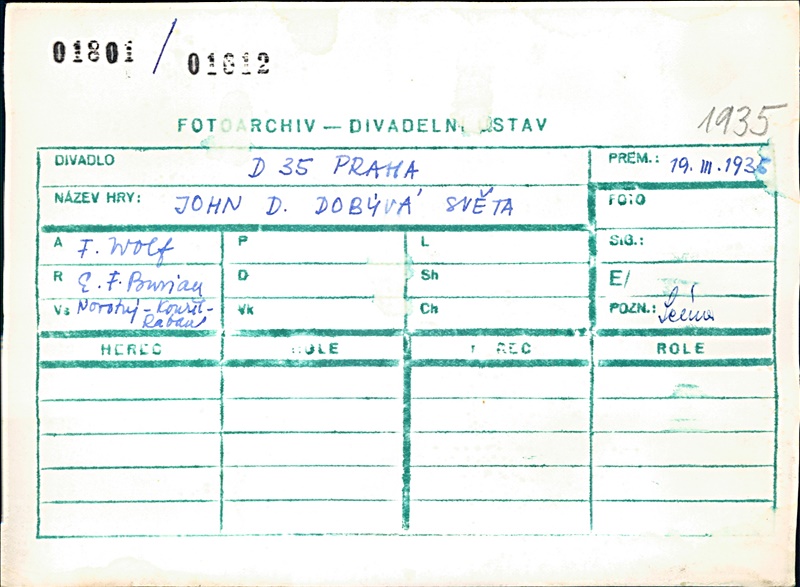 01801 / 01812
1935
FOTOARCHIV — DIVADELNÍ ÚSTAV
DIVADLO D 35 PRAHA PREM.: 19. III. 1935
NÁZEV HRY: JOHN D. DOBÝVÁ SVĚTA FOTO
A F. Wolf P L SIG.:
R E. F. Burian D Sh E/
Vs Novotný - Kouřil - Raban Vk Ch POZN.:
HEREC ROLE HEREC ROLE